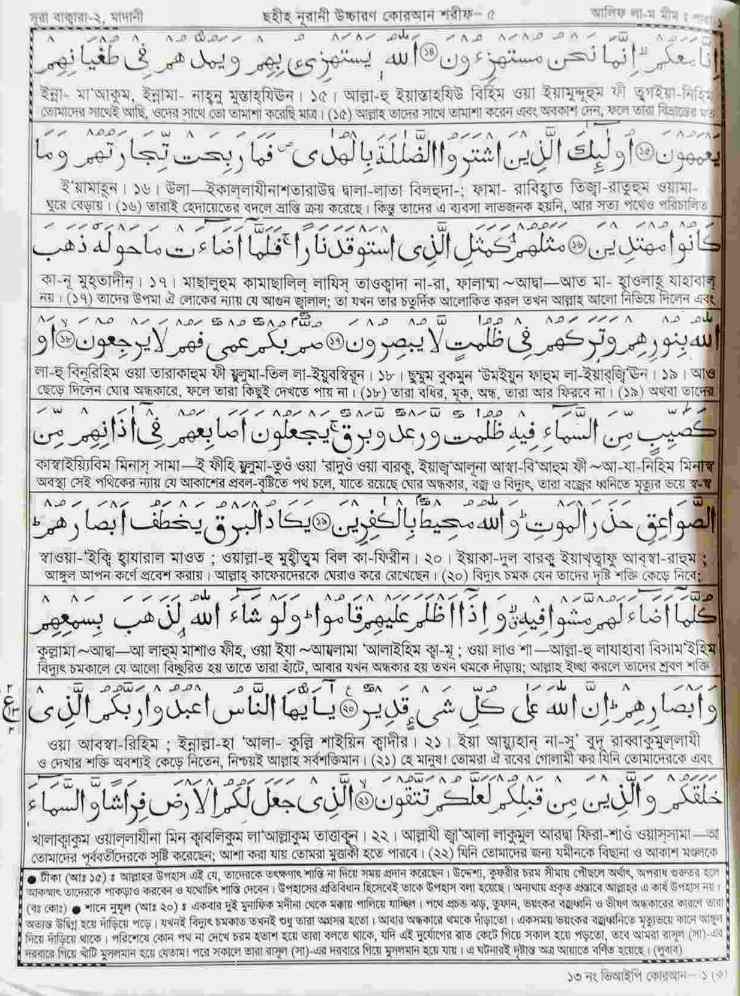 সূরা বাক্বারা-২, মাদানী
ছহীহ নূরানী উচ্চারণ কোরআন শরীফ- ৫
আলিফ লা-ম মীম ঃ পারা ১
اِنَّا مَعَكُمْ ۙ اِنَّمَا نَحْنُ مُسْتَهْزِءُوْنَ ﴿١٤﴾ اَللّٰهُ يَسْتَهْزِئُ بِهِمْ وَيَمُدُّهُمْ فِیْ طُغْيَانِهِمْ
ইন্না- মা'আকুম, ইন্নামা- নাহ্নু মুস্তাহ্যিঊন। ১৫। আল্লা-হু ইয়াস্তাহ্যিউ বিহিম ওয়া ইয়ামুদ্দুহুম ফী তুগইয়া-নিহিম
তোমাদের সাথেই আছি, ওদের সাথে তো তামাশা করেছি মাত্র। (১৫) আল্লাহ তাদের সাথে তামাশা করেন এবং অবকাশ দেন, ফলে তারা বিভ্রান্তের মত
يَعْمَهُوْنَ ﴿١٥﴾ اُولٰٓئِكَ الَّذِيْنَ اشْتَرَوُا الضَّلٰلَةَ بِالْهُدٰى ۪ فَمَا رَبِحَتْ تِّجَارَتُهُمْ وَمَا
ই'য়ামাহূন। ১৬। উলা—ইকাল্লাযীনাশতারাউদ্ব দ্বালা-লাতা বিলহুদা-; ফামা- রাবিহাত তিজ্বা-রাতুহুম ওয়ামা-
ঘুরে বেড়ায়। (১৬) তারাই হেদায়েতের বদলে ভ্রান্তি ক্রয় করেছে। কিন্তু তাদের এ ব্যবসা লাভজনক হয়নি, আর সত্য পথেও পরিচালিত
كَانُوْا مُهْتَدِيْنَ ﴿١٦﴾ مَثَلُهُمْ كَمَثَلِ الَّذِى اسْتَوْقَدَ نَارًا ۚ فَلَمَّآ اَضَآءَتْ مَا حَوْلَهٗ ذَهَبَ
কা-নূ মুহ্তাদীন। ১৭। মাছালুহুম কামাছালিল্ লাযিস্ তাওক্বাদা না-রা, ফালাম্মা ~আদ্বা—আত মা- হাওলাহূ যাহাবাল্
নয়। (১৭) তাদের উপমা ঐ লোকের ন্যায় যে আগুন জ্বালাল; তা যখন তার চতুর্দিক আলোকিত করল তখন আল্লাহ আলো নিভিয়ে দিলেন এবং
اللّٰهُ بِنُوْرِهِمْ وَتَرَكَهُمْ فِیْ ظُلُمٰتٍ لَّا يُبْصِرُوْنَ ﴿١٧﴾ صُمٌّۢ بُكْمٌ عُمْیٌ فَهُمْ لَا يَرْجِعُوْنَ ﴿١٨﴾ اَوْ
লা-হু বিনূরিহিম ওয়া তারাকাহুম ফী যুলুমা-তিল লা-ইয়ুবস্বিরূন। ১৮। ছুম্মুম বুকমুন 'উমইয়ুন ফাহুম লা-ইয়ারজ্বি'ঊন। ১৯। আও
ছেড়ে দিলেন ঘোর অন্ধকারে, ফলে তারা কিছুই দেখতে পায় না। (১৮) তারা বধির, মূক, অন্ধ, তারা আর ফিরবে না। (১৯) অথবা তাদের
كَصَيِّبٍ مِّنَ السَّمَآءِ فِيْهِ ظُلُمٰتٌ وَّرَعْدٌ وَّبَرْقٌ ۚ يَجْعَلُوْنَ اَصَابِعَهُمْ فِیْٓ اٰذَانِهِمْ مِّنَ
কাস্বাইয়্যিবিম মিনাস্ সামা—ই ফীহি যুলুমা-তুওঁ ওয়া রা'দুওঁ ওয়া বারকু, ইয়াজ্ব'আলূনা আস্বা-বি'আহুম ফী ~আ-যা-নিহিম মিনাস্ব
অবস্থা সেই পথিকের ন্যায় যে আকাশের প্রবল-বৃষ্টিতে পথ চলে, যাতে রয়েছে ঘোর অন্ধকার, বজ্র ও বিদ্যুৎ, তারা বজ্রের ধ্বনিতে মৃত্যুর ভয়ে স্ব-স্ব
الصَّوَاعِقِ حَذَرَ الْمَوْتِ ؕ وَاللّٰهُ مُحِيْطٌۢ بِالْكٰفِرِيْنَ ﴿١٩﴾ يَكَادُ الْبَرْقُ يَخْطَفُ اَبْصَارَهُمْ ؕ
স্বাওয়া-'ইক্বি হাযারাল মাওত ; ওয়াল্লা-হু মুহীতুম বিল কা-ফিরীন। ২০। ইয়াকা-দুল বারকু ইয়াখত্বাফু আবস্বা-রাহুম ;
আঙ্গুল আপন কর্ণে প্রবেশ করায়। আল্লাহ্ কাফেরদেরকে ঘেরাও করে রেখেছেন। (২০) বিদ্যুৎ চমক যেন তাদের দৃষ্টি শক্তি কেড়ে নিবে;
كُلَّمَآ اَضَآءَ لَهُمْ مَّشَوْا فِيْهِ ۙ وَاِذَآ اَظْلَمَ عَلَيْهِمْ قَامُوْا ؕ وَلَوْ شَآءَ اللّٰهُ لَذَهَبَ بِسَمْعِهِمْ
কুল্লামা ~আদ্বা—আ লাহুম মাশাও ফীহ, ওয়া ইযা ~আয্লামা 'আলাইহিম ক্বা-মূ ; ওয়া লাও শা—আল্লা-হু লাযাহাবা বিসাম'ইহিম
বিদ্যুৎ চমকালে যে আলো বিচ্ছুরিত হয় তাতে তারা হাঁটে, আবার যখন অন্ধকার হয় তখন থমকে দাঁড়ায়; আল্লাহ ইচ্ছা করলে তাদের শ্রবণ শক্তি
وَاَبْصَارِهِمْ ؕ اِنَّ اللّٰهَ عَلٰى كُلِّ شَیْءٍ قَدِيْرٌ ﴿٢٠﴾ يٰٓاَيُّهَا النَّاسُ اعْبُدُوْا رَبَّكُمُ الَّذِیْ
ওয়া আবস্বা-রিহিম ; ইন্নাল্লা-হা 'আলা- কুল্লি শাইয়িন ক্বাদীর। ২১। ইয়া আয়্যুহান্ না-সু' বুদূ রাব্বাকুমুল্লাযী
ও দেখার শক্তি অবশ্যই কেড়ে নিতেন, নিশ্চয়ই আল্লাহ সর্বশক্তিমান। (২১) হে মানুষ! তোমরা ঐ রবের গোলামী কর যিনি তোমাদেরকে এবং
خَلَقَكُمْ وَالَّذِيْنَ مِنْ قَبْلِكُمْ لَعَلَّكُمْ تَتَّقُوْنَ ﴿٢١﴾ الَّذِیْ جَعَلَ لَكُمُ الْاَرْضَ فِرَاشًا وَّالسَّمَآءَ
খালাক্বাকুম ওয়াল্লাযীনা মিন ক্বাবলিকুম লা'আল্লাকুম তাত্তাকুন। ২২। আল্লাযী জ্বা'আলা লাকুমুল আরদ্বা ফিরা-শাওঁ ওয়াস্সামা—আ
তোমাদের পূর্ববর্তীদেরকে সৃষ্টি করেছেন; আশা করা যায় তোমরা মুত্তাকী হতে পারবে। (২২) যিনি তোমাদের জন্য যমীনকে বিছানা ও আকাশ মণ্ডলকে
● টীকা (আঃ ১৫) ঃ আল্লাহর উপহাস এই যে, তাদেরকে তৎক্ষণাৎ শাস্তি না দিয়ে সময় প্রদান করেছেন। উদ্দেশ্য, কুফরীর চরম সীমায় পৌছলে অর্থাৎ, অপরাধ গুরুতর হলে
আকস্মাৎ তাদেরকে পাকড়াও করবেন ও যথোচিৎ শাস্তি দেবেন। উপহাসের প্রতিবিধান হিসেবেই তাকে উপহাস বলা হয়েছে। অন্যথায় প্রকৃত প্রস্তাবে আল্লাহর এ কার্য উপহাস নয়।
(বঃ কোঃ) ● শানে নুযূল (আঃ ২০) ঃ একবার দুই মুনাফিক মদীনা থেকে মক্কায় পালিয়ে যাচ্ছিল। পথে প্রচন্ড ঝড়, তুফান, ভয়ংকর বজ্রধ্বনি ও ভীষণ অন্ধকারের কারণে তারা
অত্যন্ত উদ্বিগ্ন হয়ে দাঁড়িয়ে পড়ে। যখনই বিদ্যুৎ চমকাত তখনই শুধু তারা অগ্রসর হতো। আবার অন্ধকারে থমকে দাঁড়াতো। একসময় ভয়ংকর বজ্রধ্বনিতে মৃত্যুভয়ে কানে আঙ্গুল
দিয়ে দাঁড়িয়ে থাকে। পরিশেষে কোন পথ না দেখে চরম হতাশ হয়ে তারা বলতে থাকে, যদি এই দুর্যোগের রাত কেটে গিয়ে সকাল হয়ে পড়তো, তবে আমরা রাসূল (সা)-এর
দরবারে গিয়ে খাঁটি মুসলমান হয়ে যেতাম। পরে সকালে তারা রাসূল (সা)-এর দরবারে গিয়ে মুসলমান হয়ে যায়। এ ঘটনারই দৃষ্টান্ত অত্র আয়াতে বর্ণিত হয়েছে। (লুবাব)
১৩ নং ভিআইপি কোরআন– ১ (ক)